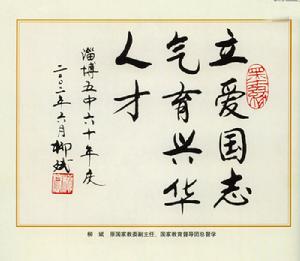 立爱国志
气育兴华
人才
淄博五中六十年庆
二〇〇二年六月 柳斌
柳 斌 原国家教委副主任、国家教育督导团总督学